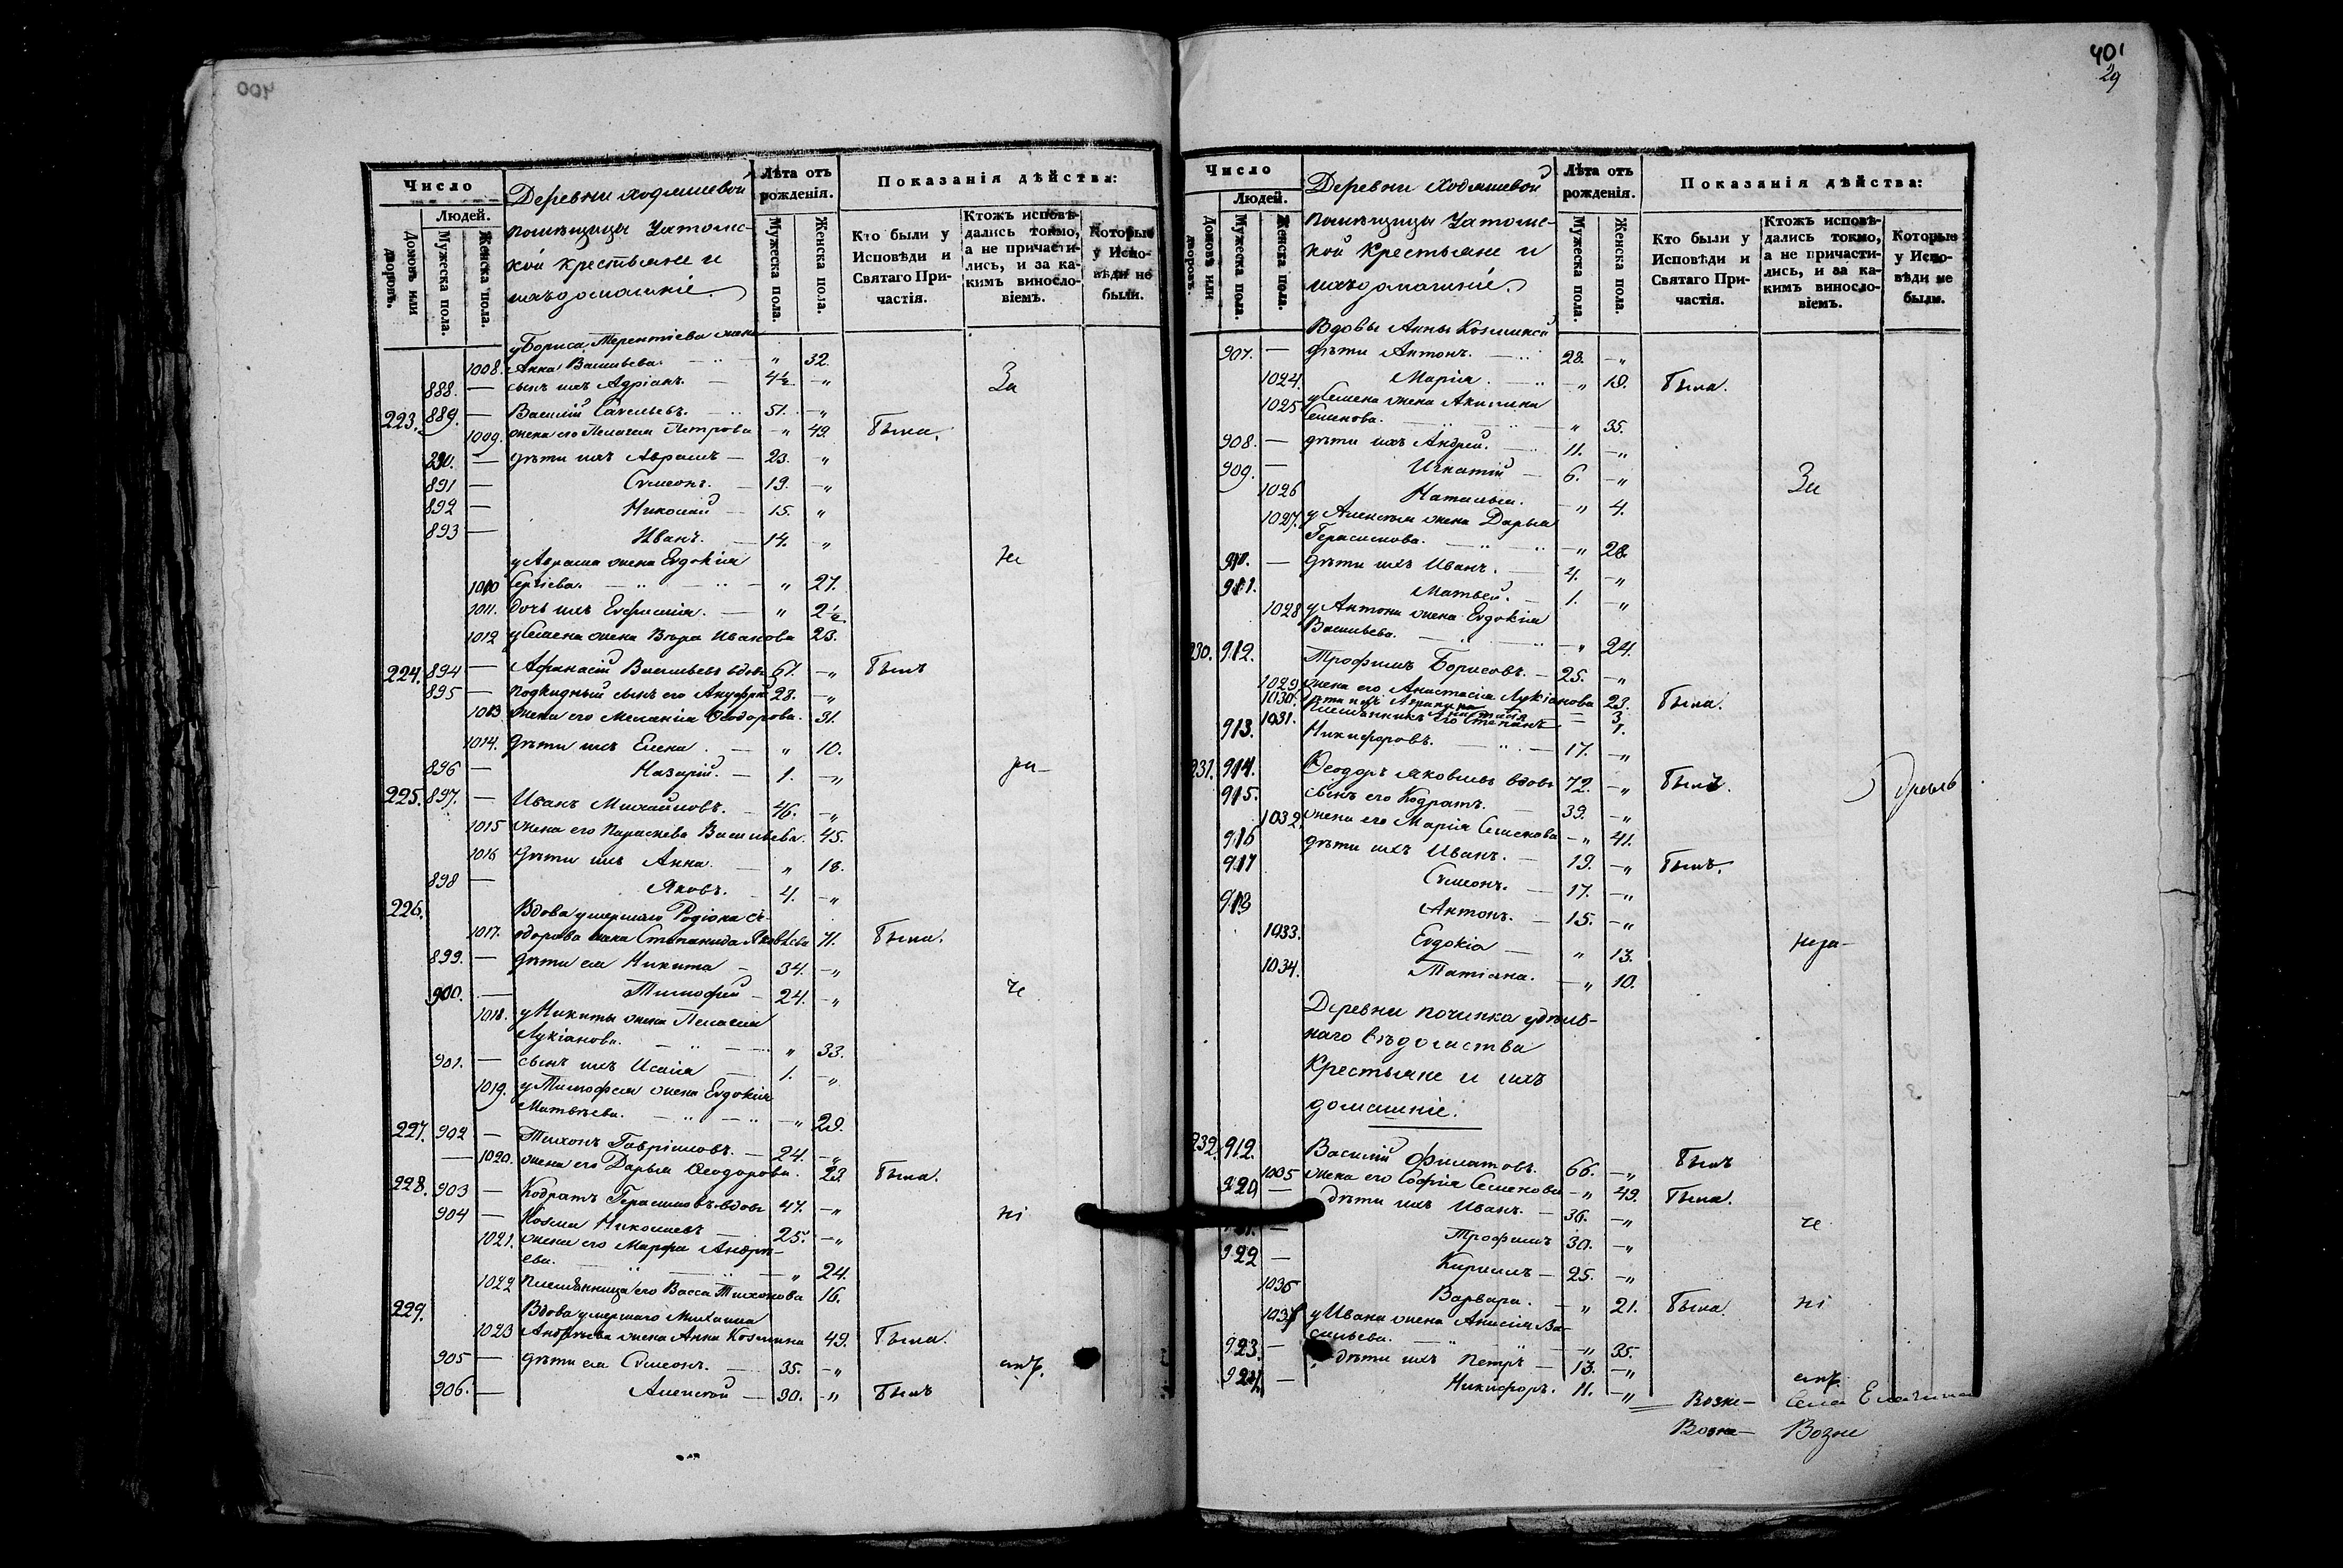 400
Число
Людей.
Домовъ или дворовъ.
Мужеска пола.
Женска пола.
Деревни Ходяшевой
помѣщицы
кой крестьяне и
ихъ домашніе.
Лѣта отъ рожденія.
Мужеска пола.
Женска пола.
Показанія дѣйства:
Кто были у Исповѣди и Святаго Причастія.
Ктожъ исповѣдались токмо, а не причастились, и за какимъ винословіемъ.
Которые у Исповѣди не были.
у Бориса Терентіева жена
1008. Анна Васильева. — " 32.
888. — сынъ ихъ Адріанъ. — 4½ — " За
223. 889. — Василій Савельевъ. — 51. — "
1009. жена его Пелагея Петрова — " 49. Была.
890. — дѣти ихъ Аврамъ — 23. — "
891 — Сѵмеонъ. — 19. — "
892 — Николай — 15. "
893 — Иванъ. — 14. — "
у Аврама жена Евдокія не
1010 Сергіева. — " 27.
1011. дочь ихъ Евфимія. — " 2½
1012 у Семена жена Вѣра Иванова 23.
224. 894 — Афанасій Васильевъ вдовъ 61. — " Былъ
895 — подкидный сынъ его Ануфрій 28. — "
1013 жена его Меланія Ѳеодорова. 31.
1014. дѣти ихъ Елена. — " 10.
896 — Назарій. — 1. — " ра-
225. 897. — Иванъ Михайловъ. — 46. — "
1015 жена его Параскева Васильева. 45.
1016 дѣти ихъ Анна. — " 18.
898 — Яковъ. — 4. — "
226. Вдова умершаго Родіона Ѳе-
1017. одорова жена Степанида Яковлева 71. Была.
899. — дѣти ея Никита — 34. — "
900. — Тимофей — 24. — " че
1018. у Никиты жена Пелагея
Лукіанова. — " 33.
901. — сынъ ихъ Исаія 1. — "
1019. у Тимофея жена Евдокія
Матвѣева. — " 29.
227. 902 — Тихонъ Гаврииловъ. — 24. — "
— 1020. жена его Дарья Ѳеодорова. 23. Была.
228. 903 — Кодратъ Герасимовъ вдовъ 47. — "
904 — Козма Николаевъ — 25. — " ні
1021. жена его Марфа Андре-
ева. — " 24.
1022 племянница его Васса Тихонова 16.
229. Вдова умершаго Михаила
1023 Андреева жена Анна Козмина 49. Была.
905 — дѣти ея Сѵмеонъ. — 35. — "
906. — Алексѣй — 30. — " Былъ
401
29
Число
Людей.
Домовъ или дворовъ.
Мужеска пола.
Женска пола.
Деревни Ходяшевой
помѣщицы
кой крестьяне и
ихъ домашніе.
Лѣта отъ рожденія.
Мужеска пола.
Женска пола.
Показанія дѣйства:
Кто были у Исповѣди и Святаго Причастія.
Ктожъ исповѣдались токмо, а не причастились, и за какимъ винословіемъ.
Которые у Исповѣди не были.
Вдовы Анны Козминой
907. — дѣти Антонъ. — 28. — "
1024. Марія. — " 19. Была.
у Семена жена Акилина
1025 Семенова. — " 35.
908. — дѣти ихъ Андрей. — 11. — "
909. — Игнатій — 6. — " За
1026 Наталья. — " 4.
1027. у Алексѣя жена Дарья
Герасимова. — " 28.
910. — дѣти ихъ Иванъ. — 4. — "
911. Матвей. — 1. — "
1028 у Антона жена Евдокія
Васильева. — " 24.
230. 912. Трофимъ Борисовъ. — 25. — "
1029 жена его Анастасія Лукіанова 23. Была.
1030. дѣти ихъ — 3.
1031. 1.
племянникъ его Степанъ
913. Никифоровъ. — 17. — "
231. 914. Ѳеодоръ Яковлевъ вдовъ 72. — " Былъ.
915. сынъ его Кодратъ. — 39. — "
1032. жена его Марія Семенова — " 41.
916 дѣти ихъ Иванъ. — 19. — " Былъ.
917 Сѵмеонъ. — 17. — "
918 Антонъ. — 15. — "
1033. Евдокія — " 13.
1034. Татіана. — " 10.
Деревни Починка удѣль-
наго вѣдомства
крестьяне и ихъ
домашніе.
232. 912. Василій Филатовъ. 66. — " Былъ
1005 жена его Софія Семенова — " 49. Была.
920 — дѣти ихъ Иванъ. — 36. — " че
— Трофимъ 30. — "
922 — Кириллъ — 25. — "
1035 Варвара. — " 21. Была. ні
у Ивана жена Анисія Ва-
сильева. — " 35.
923. — дѣти ихъ Петръ — 13. — "
924. — Никифоръ. 11. — "